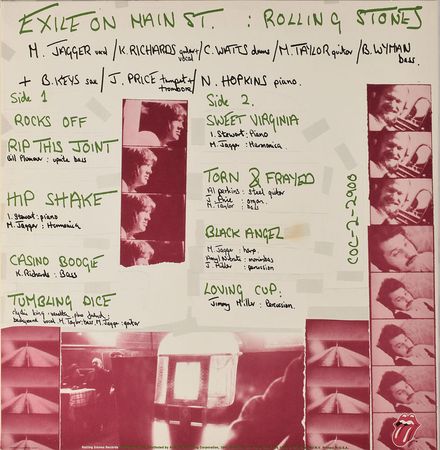 EXILE ON MAIN ST. : ROLLING STONES
M. JAGGER vocal / K. RICHARDS guitar vocal / C. WATTS drums / M. TAYLOR guitar / B. WYMAN bass.
+ B. KEYS sax / J. PRICE trumpet + trombone / N. HOPKINS piano.
Side 1
ROCKS OFF
RIP THIS JOINT
Bill Plummer : uprite bass
HIP SHAKE
I. Stewart : piano
M. Jagger : Harmonica
CASINO BOOGIE
K. Richards : Bass
TUMBLING DICE
M. Taylor : bass, M. Jagger : guitar
Side 2.
SWEET VIRGINIA
I. Stewart : Piano
M. Jagger : Harmonica.
TORN & FRAYED
Al perkins : Steel guitar
J. Price : organ.
M. Taylor : bass
BLACK ANGEL
M. Jagger : harp.
Amyl Nitrate : marimbas
J. Miller : percussion
LOVING CUP:
Jimmy Miller : Percussion.
COC-2-2900